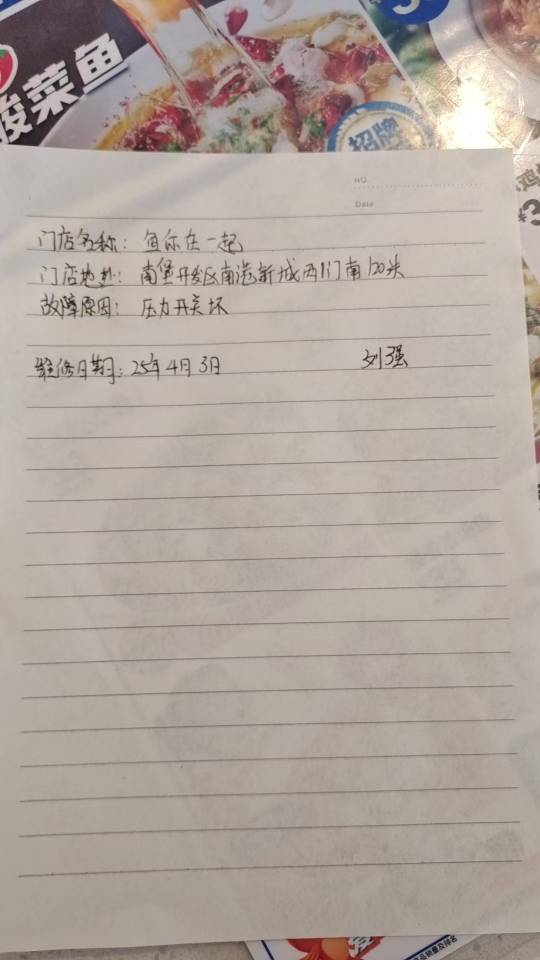 酸菜鱼
招牌
NO.
Date
门店名称：鱼你在一起
门店地址：南堡开发区南港新城西门南120米
故障原因：压力开关坏
维修日期：25年4月3日 刘强
品销量及排名